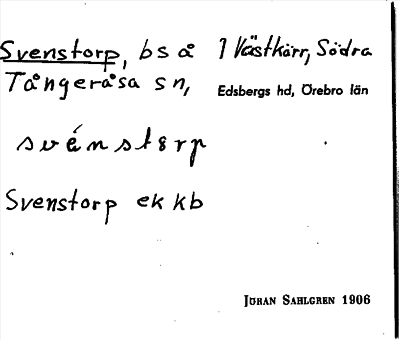 Svenstorp, bs å 1 Västkärr, Södra
Tångeråsa sn, Edsbergs hd, Örebro län
svénstɵrp
Svenstorp ek kb
JÖRAN SAHLGREN 1906